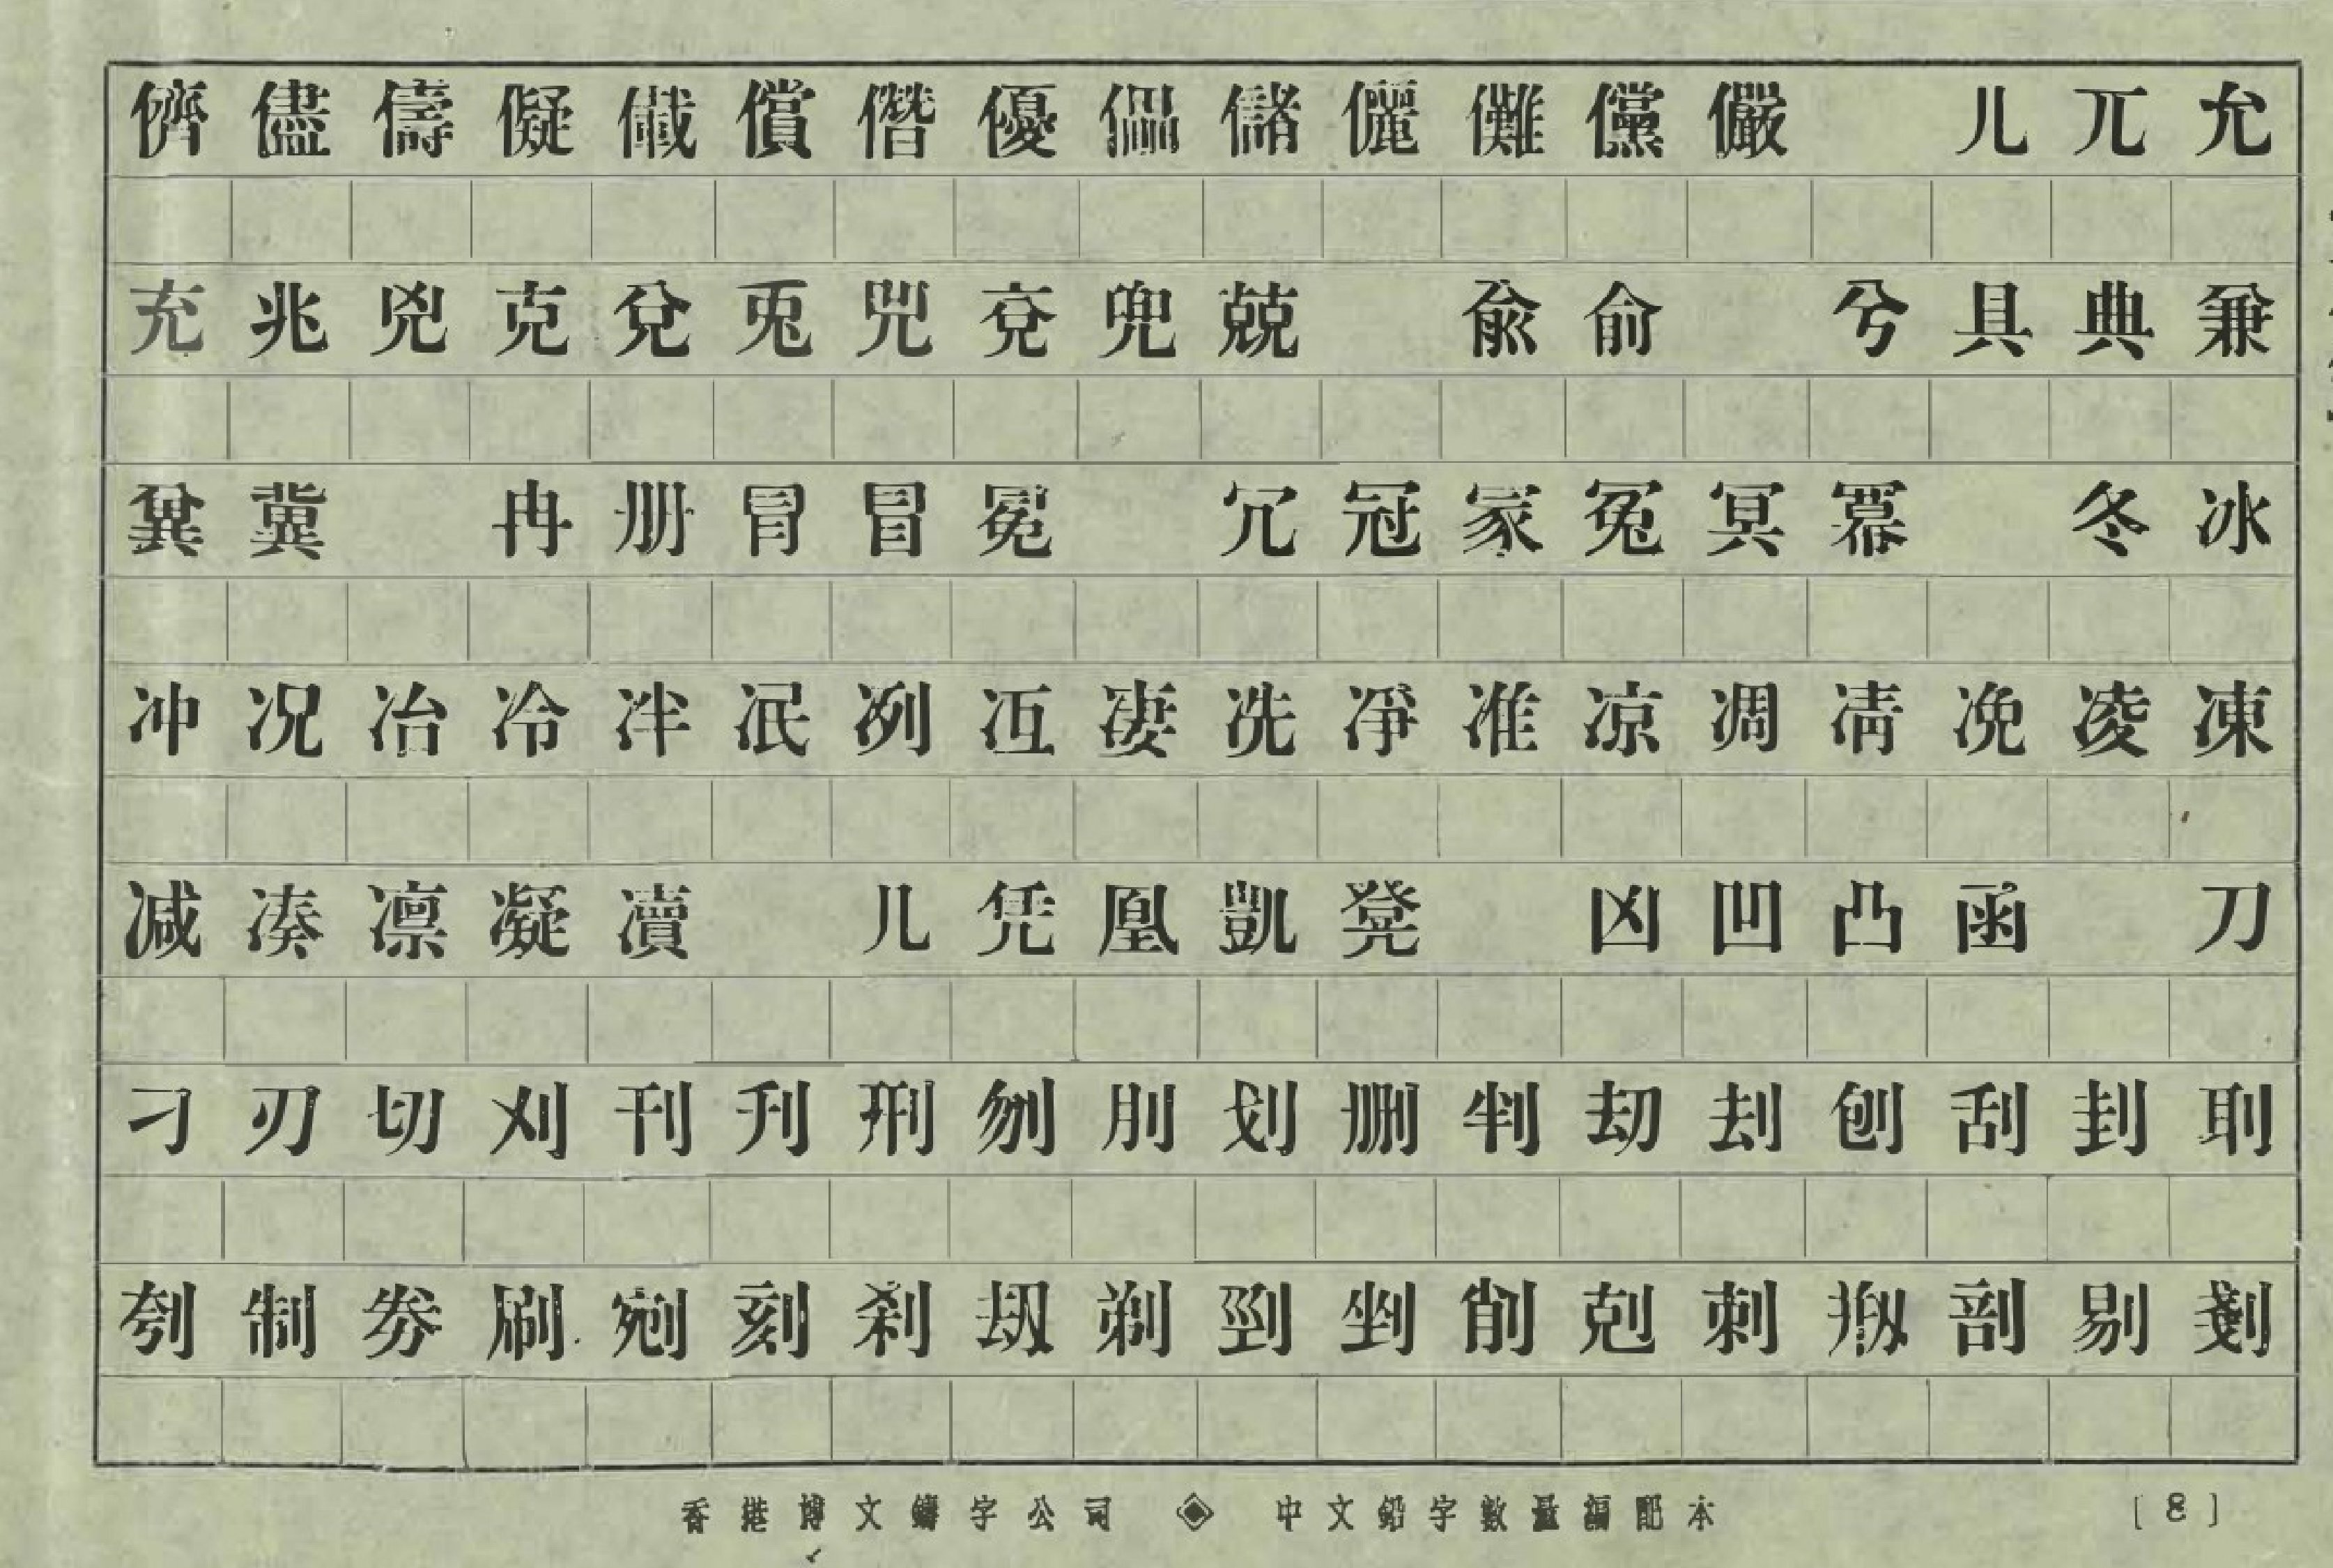 儕 儘 儔 儗 儎 償 僭 優 儡 儲 儷 儺 儻 儼 儿 兀 允
充 兆 兇 克 兌 兎 兕 兗 兜 兢 兪 俞 兮 具 典 兼
冀 冉 册 冐 冒 冕 冗 冠 冢 冤 冥 冪 冬 冰
冲 况 冶 冷 冸 泯 冽 冱 凄 冼 凈 准 凉 凋 凊 凌 凍
减 凑 凛 凝 凟 几 凭 凰 凱 凳 凶 凹 凸 函 刀
刁 刃 切 刈 刊 刑 刎 刖 划 删 判 刦 刨 刮 刲 刵
刳 制 券 刷 剜 刻 刹 刼 剃 剄 剉 削 剋 刺 剏 剖 剔 剗
香港博文鑄字公司 ◈ 中文鉛字數量編配本 [8]